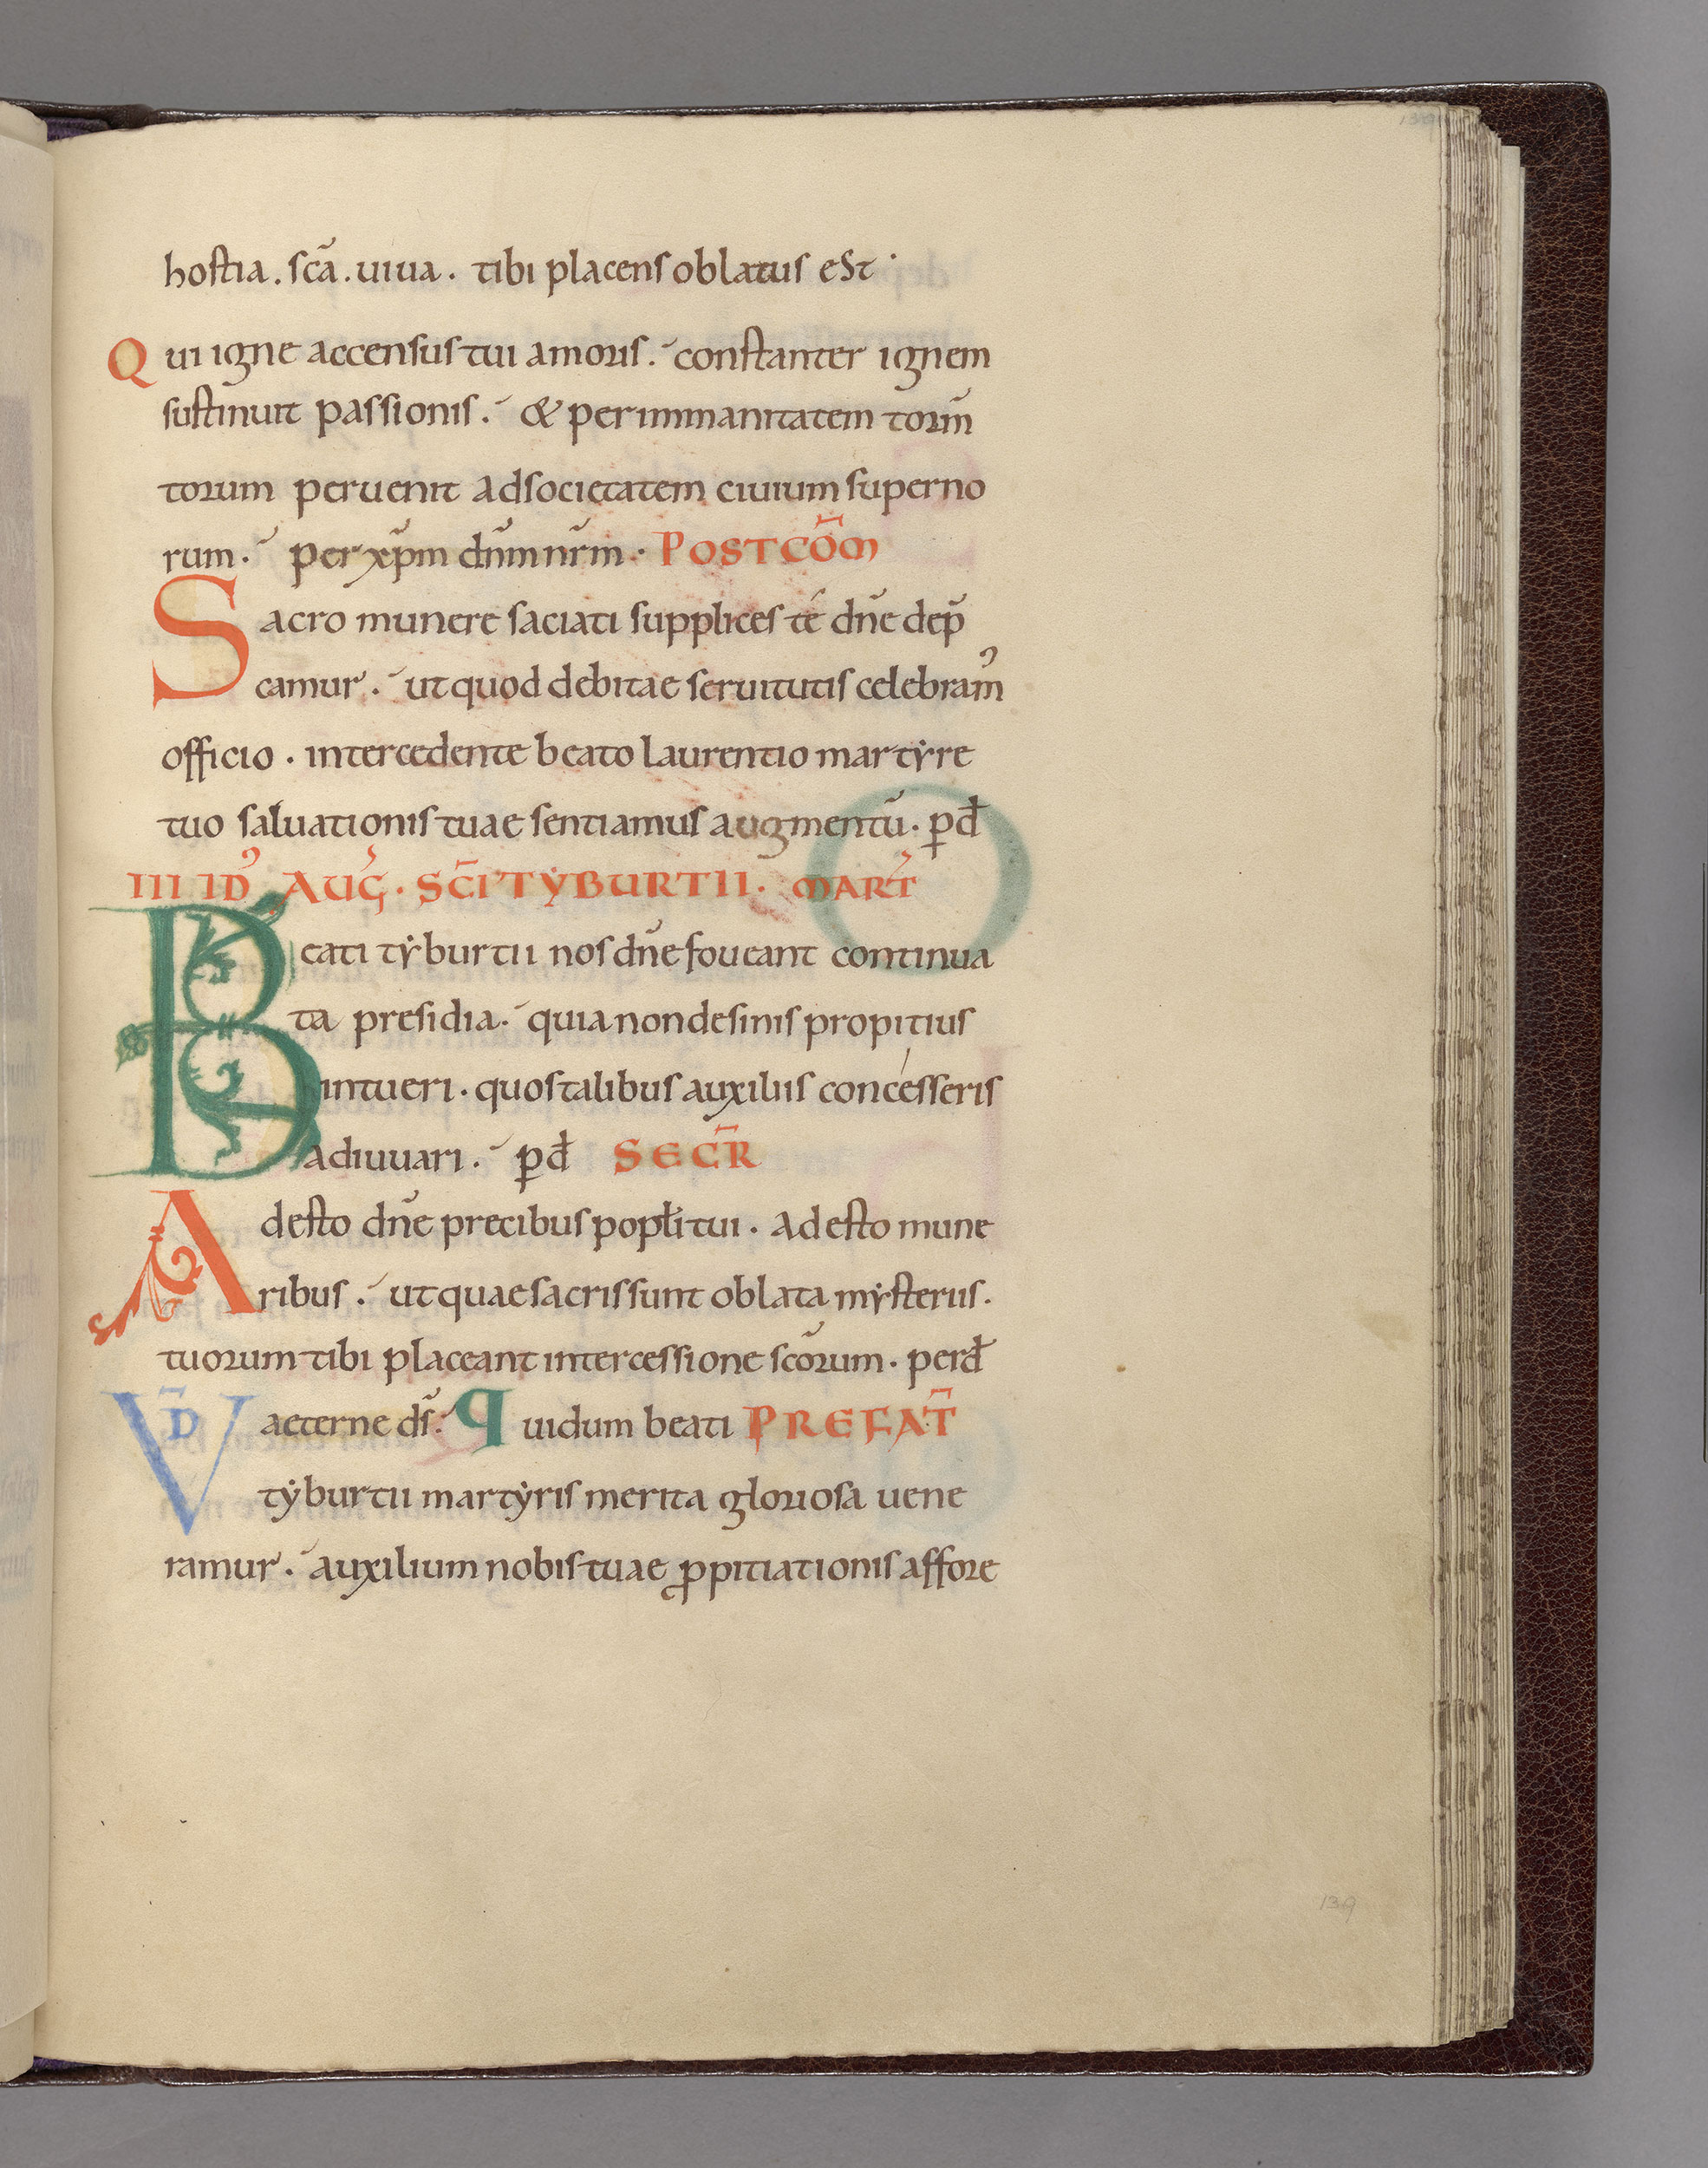 139
hostia. scā. uiua. tibi placens oblatus est.
Qui igne accensus tui amoris. constanter ignem
sustinuit passionis. & per immanitatem torm̄
torum peruenit ad societatem ciuium superno
rum. per xp̄m dn̄m nr̄m. POSTCŌM
Sacro munere saciati supplices té dn̄e dep̄
camur. ut quod debitae seruitutis celebram᾽
officio. intercedente beato laurentio martẏre
tuo saluationis tuae sentiamus augmentū. p̱ đ
III ID᾽ AUG᾽. SC̄I TẎBURTII. MART᾽
Beati tẏburtii nos dn̄e foueant continua
ta presidia. quia non desinis propitius
intueri. quos talibus auxiliis concésseris
adiuuari. p̱ đ SECR̄
Adesto dn̄e precibus popłi tui. Adesto mune
ribus. ut quae sacris sunt oblata mẏsteriis.
tuorum tibi placeant intercessione scōrum. per đ
VD̄ aeterne ds̄. Quidum beati PREFAT̄
tẏburtii martẏris merita gloriosa uene
ramur. auxilium nobis tuae ꝓpitiationis affore
139